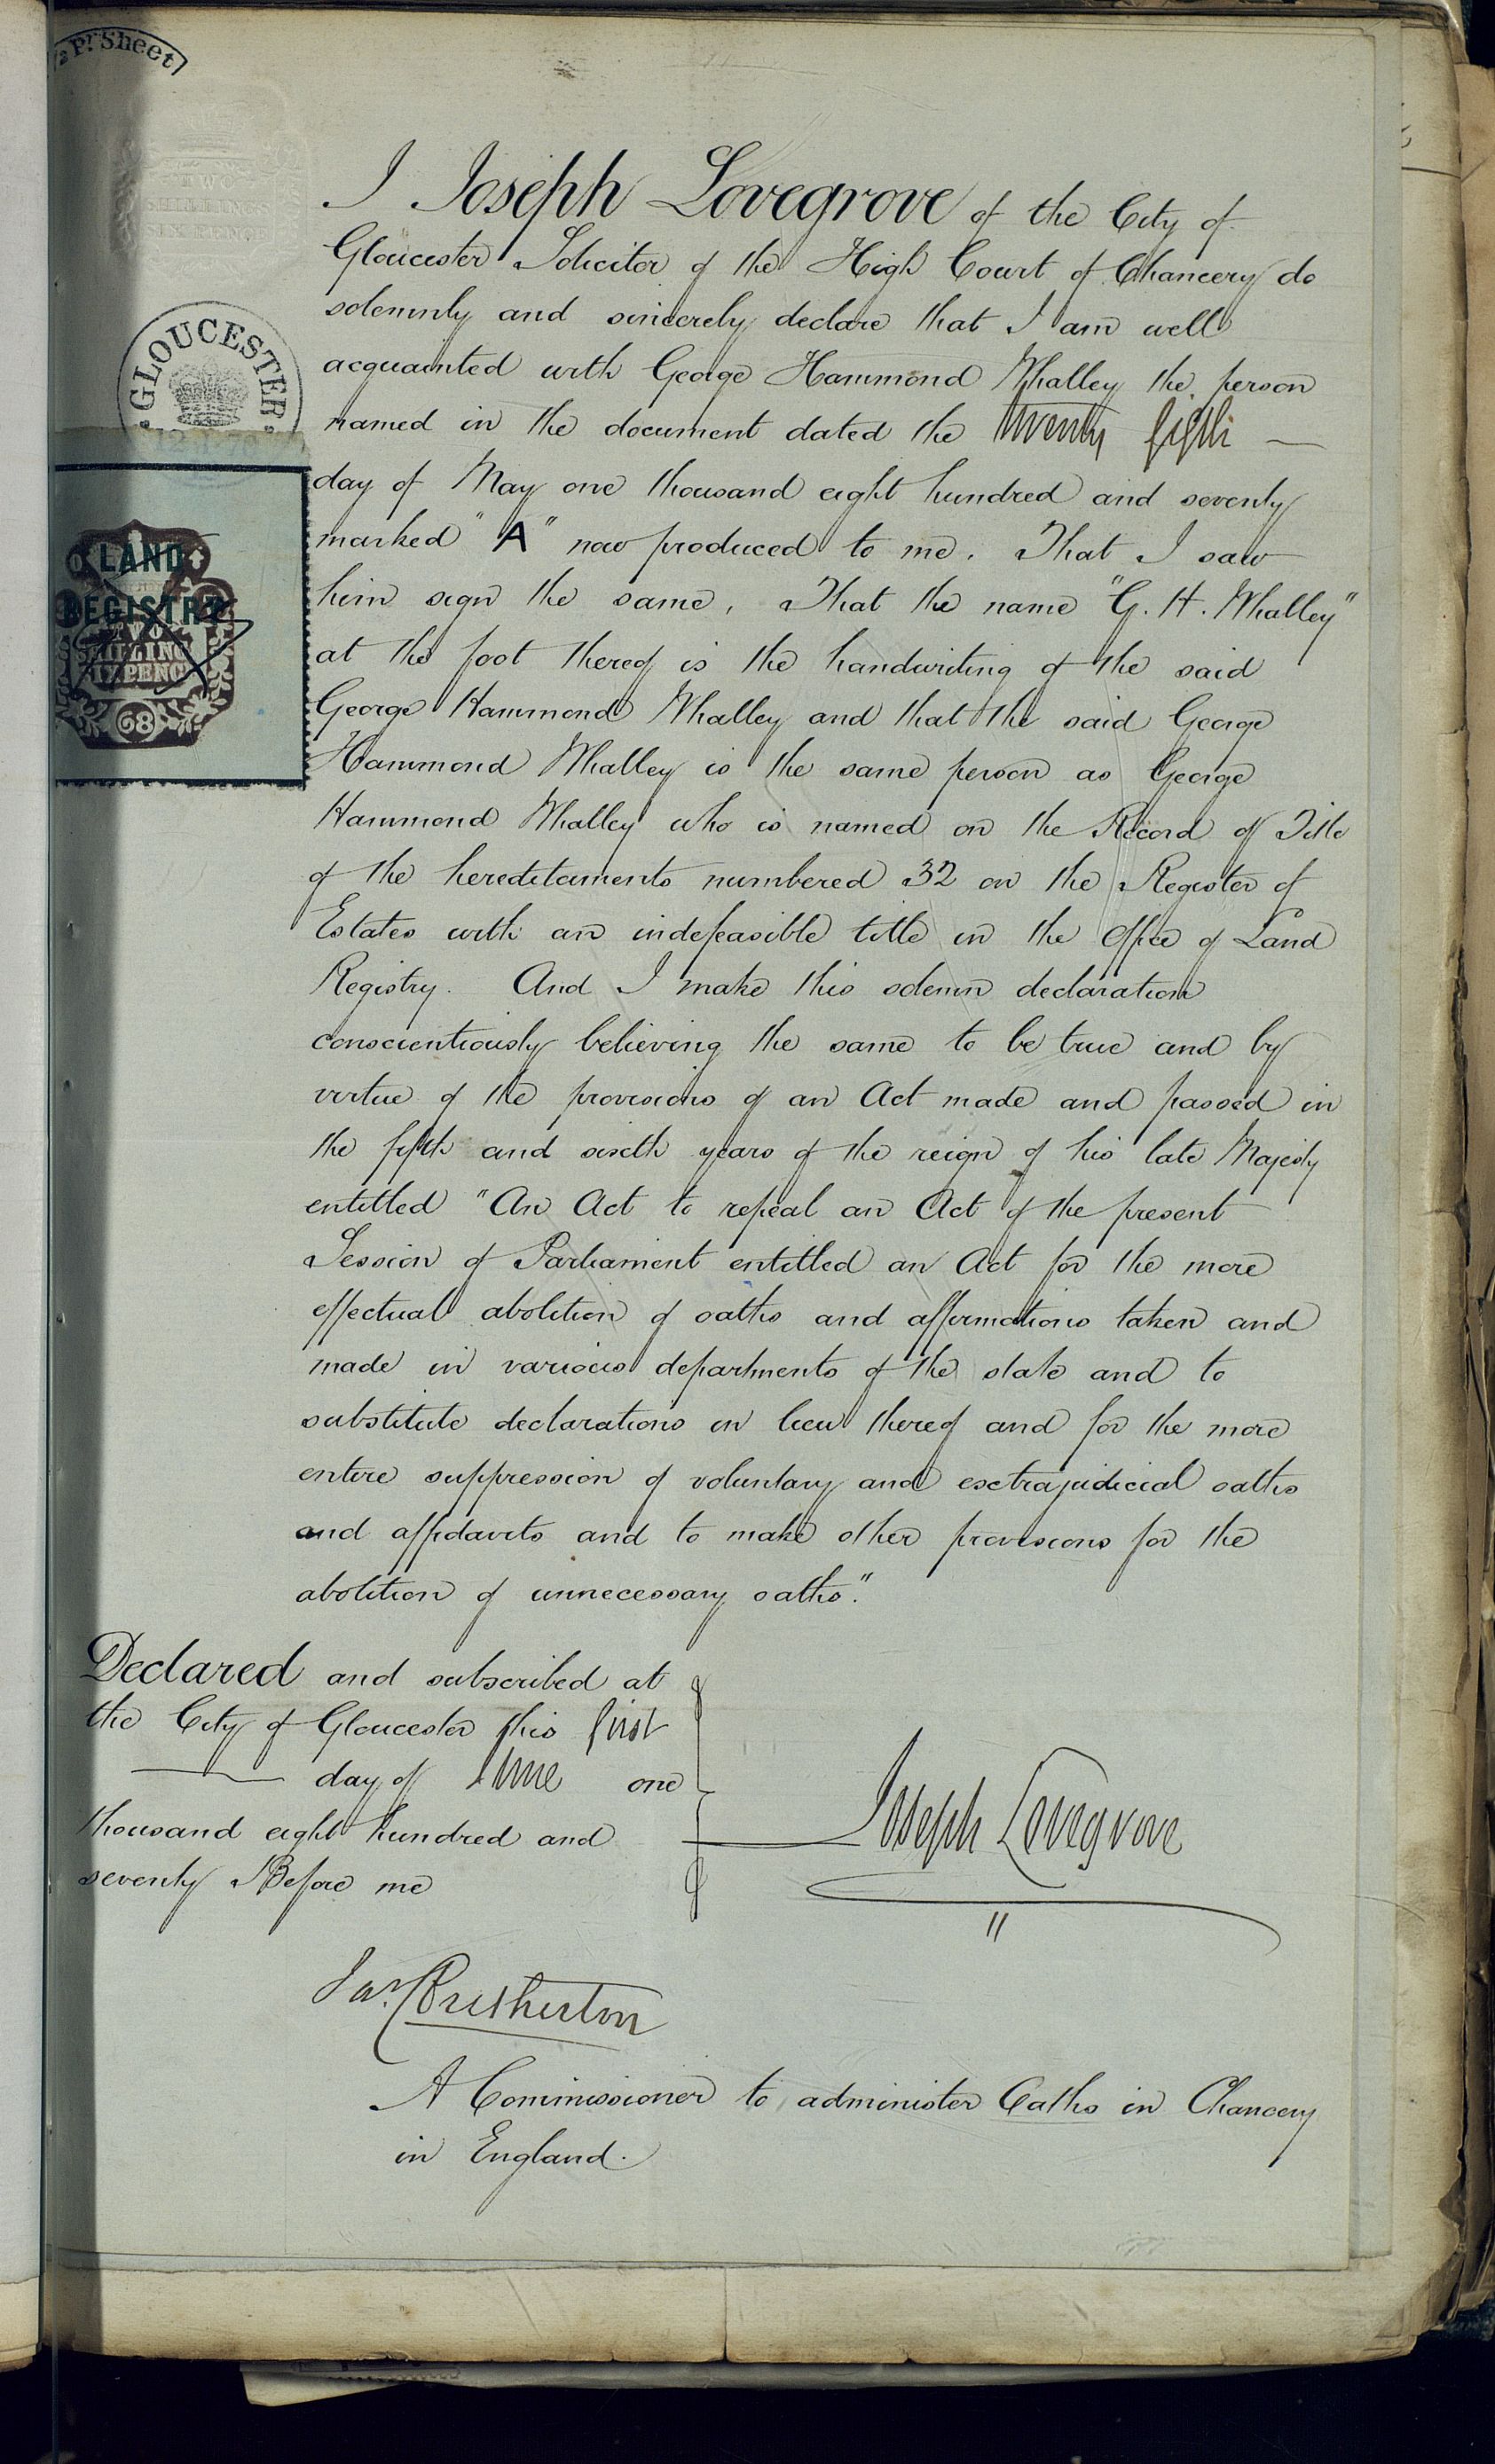 Pr. Sheet
TWO
SHILLINGS
SIX PENCE
GLOUCESTER
LAND
REGISTRY
TWO
SHILLING
SIXPENCE
68
I Joseph Lovegrove of the City of
Gloucester Solicitor of the High Court of Chancery do
solemnly and sincerely declare that I am well
acquainted with George Hammond Whalley the person
named in the document dated the twenty fifth —
day of May one thousand eight hundred and seventy
marked "A" now produced to me. That I saw
him sign the same. That the name "G. H. Whalley"
at the foot thereof is the handwriting of the said
George Hammond Whalley and that the said George
Hammond Whalley is the same person as George
Hammond Whalley who is named on the Record of Title
of the hereditaments numbered 32 on the Register of
Estates with an indefeasible title in the Office of Land
Registry. And I make this solemn declaration
conscientiously believing the same to be true and by
virtue of the provisions of an Act made and passed in
the fifth and sixth years of the reign of his late Majesty
entitled "An Act to repeal an Act of the present
Session of Parliament entitled an Act for the more
effectual abolition of oaths and affirmations taken and
made in various departments of the state and to
substitute declarations in lieu thereof and for the more
entire suppression of voluntary and extrajudicial oaths
and affidavits and to make other provisions for the
abolition of unnecessary oaths."
Declared and subscribed at
the City of Gloucester this first
— day of June one
thousand eight hundred and
seventy Before me
Joseph Lovegrove
Jas. Bretherton
A Commissioner to administer Oaths in Chancery
in England.